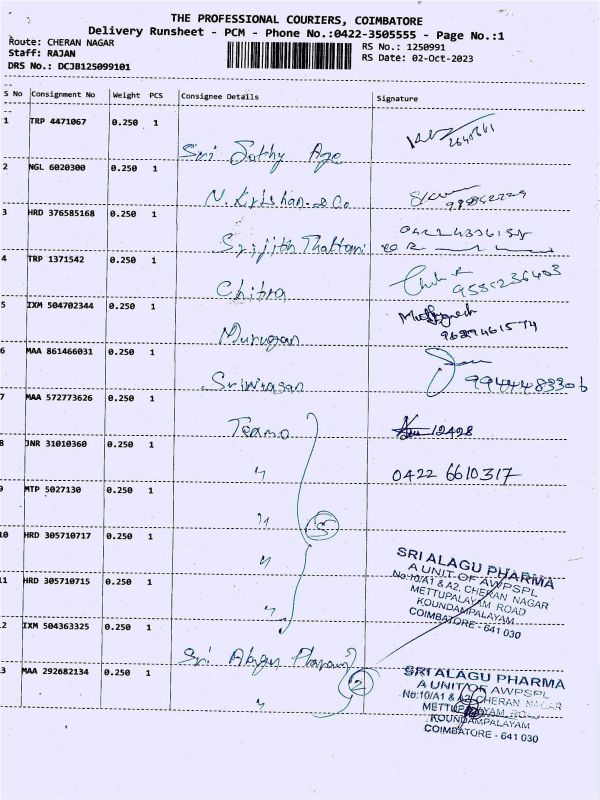 THE PROFESSIONAL COURIERS, COIMBATORE
Delivery Runsheet - PCM - Phone No.:0422-3505555 - Page No.:1
Route: CHERAN NAGAR
RS No.: 1250991
Staff: RAJAN
RS Date: 02-Oct-2023
DRS No.: DCJB125099101
S No Consignment No Weight PCS Consignee Details Signature
1 TRP 4471067 0.250 1
Sri Jothy Age
2 NGL 6020300 0.250 1
N. Krishan & Co
3 HRD 376585168 0.250 1
Srijith Thattani
4 TRP 1371542 0.250 1
Chitra
5 IXM 504702344 0.250 1
Murugan
6 MAA 861466031 0.250 1 9944483306
Srinivasan
7 MAA 572773626 0.250 1
Teamo 12428
8 JNR 31010360 0.250 1 0422 6610317
"
9 MTP 5027130 0.250 1
" 5
10 HRD 305710717 0.250 1
"
SRI ALAGU PHARMA
A UNIT OF AWPSPL
No:10/A1 & A2, CHERAN NAGAR
METTUPALAYAM ROAD
KOUNDAMPALAYAM
COIMBATORE - 641 030
11 HRD 305710715 0.250 1
"
12 IXM 504363325 0.250 1
Sri Alagu Pharma
13 MAA 292682134 0.250 1 2
"
SRI ALAGU PHARMA
A UNIT OF AWPSPL
No:10/A1 & A2, CHERAN NAGAR
METTUPALAYAM ROAD
KOUNDAMPALAYAM
COIMBATORE - 641 030